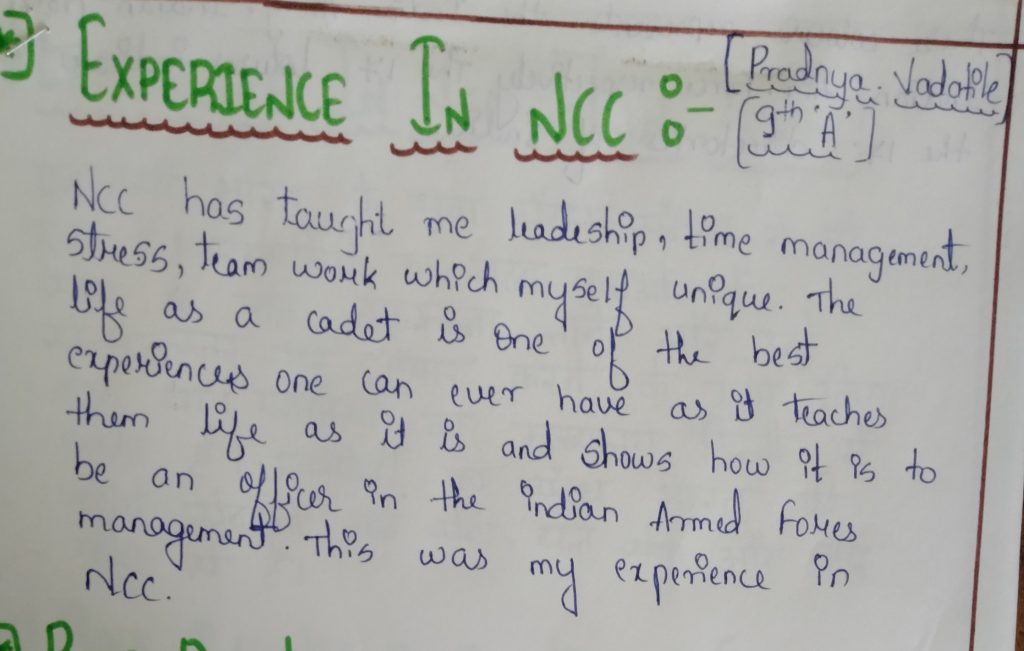 EXPERIENCE IN NCC :- [Pradnya. Vadatile]
[9th 'A']
NCC has taught me leadeship, time management,
stress, team work which myself unique. The
life as a cadet is one of the best
experiences one can ever have as it teaches
them life as it is and shows how it is to
be an officer in the indian Armed Forces
management. This was my experience in
NCC.